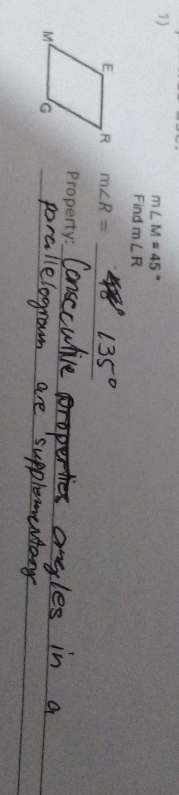 1)
m∠M = 45°
Find m∠R
M
E
R
G
m∠R = 135°
Property: Consecutive angles in a
parallelogram are supplementary